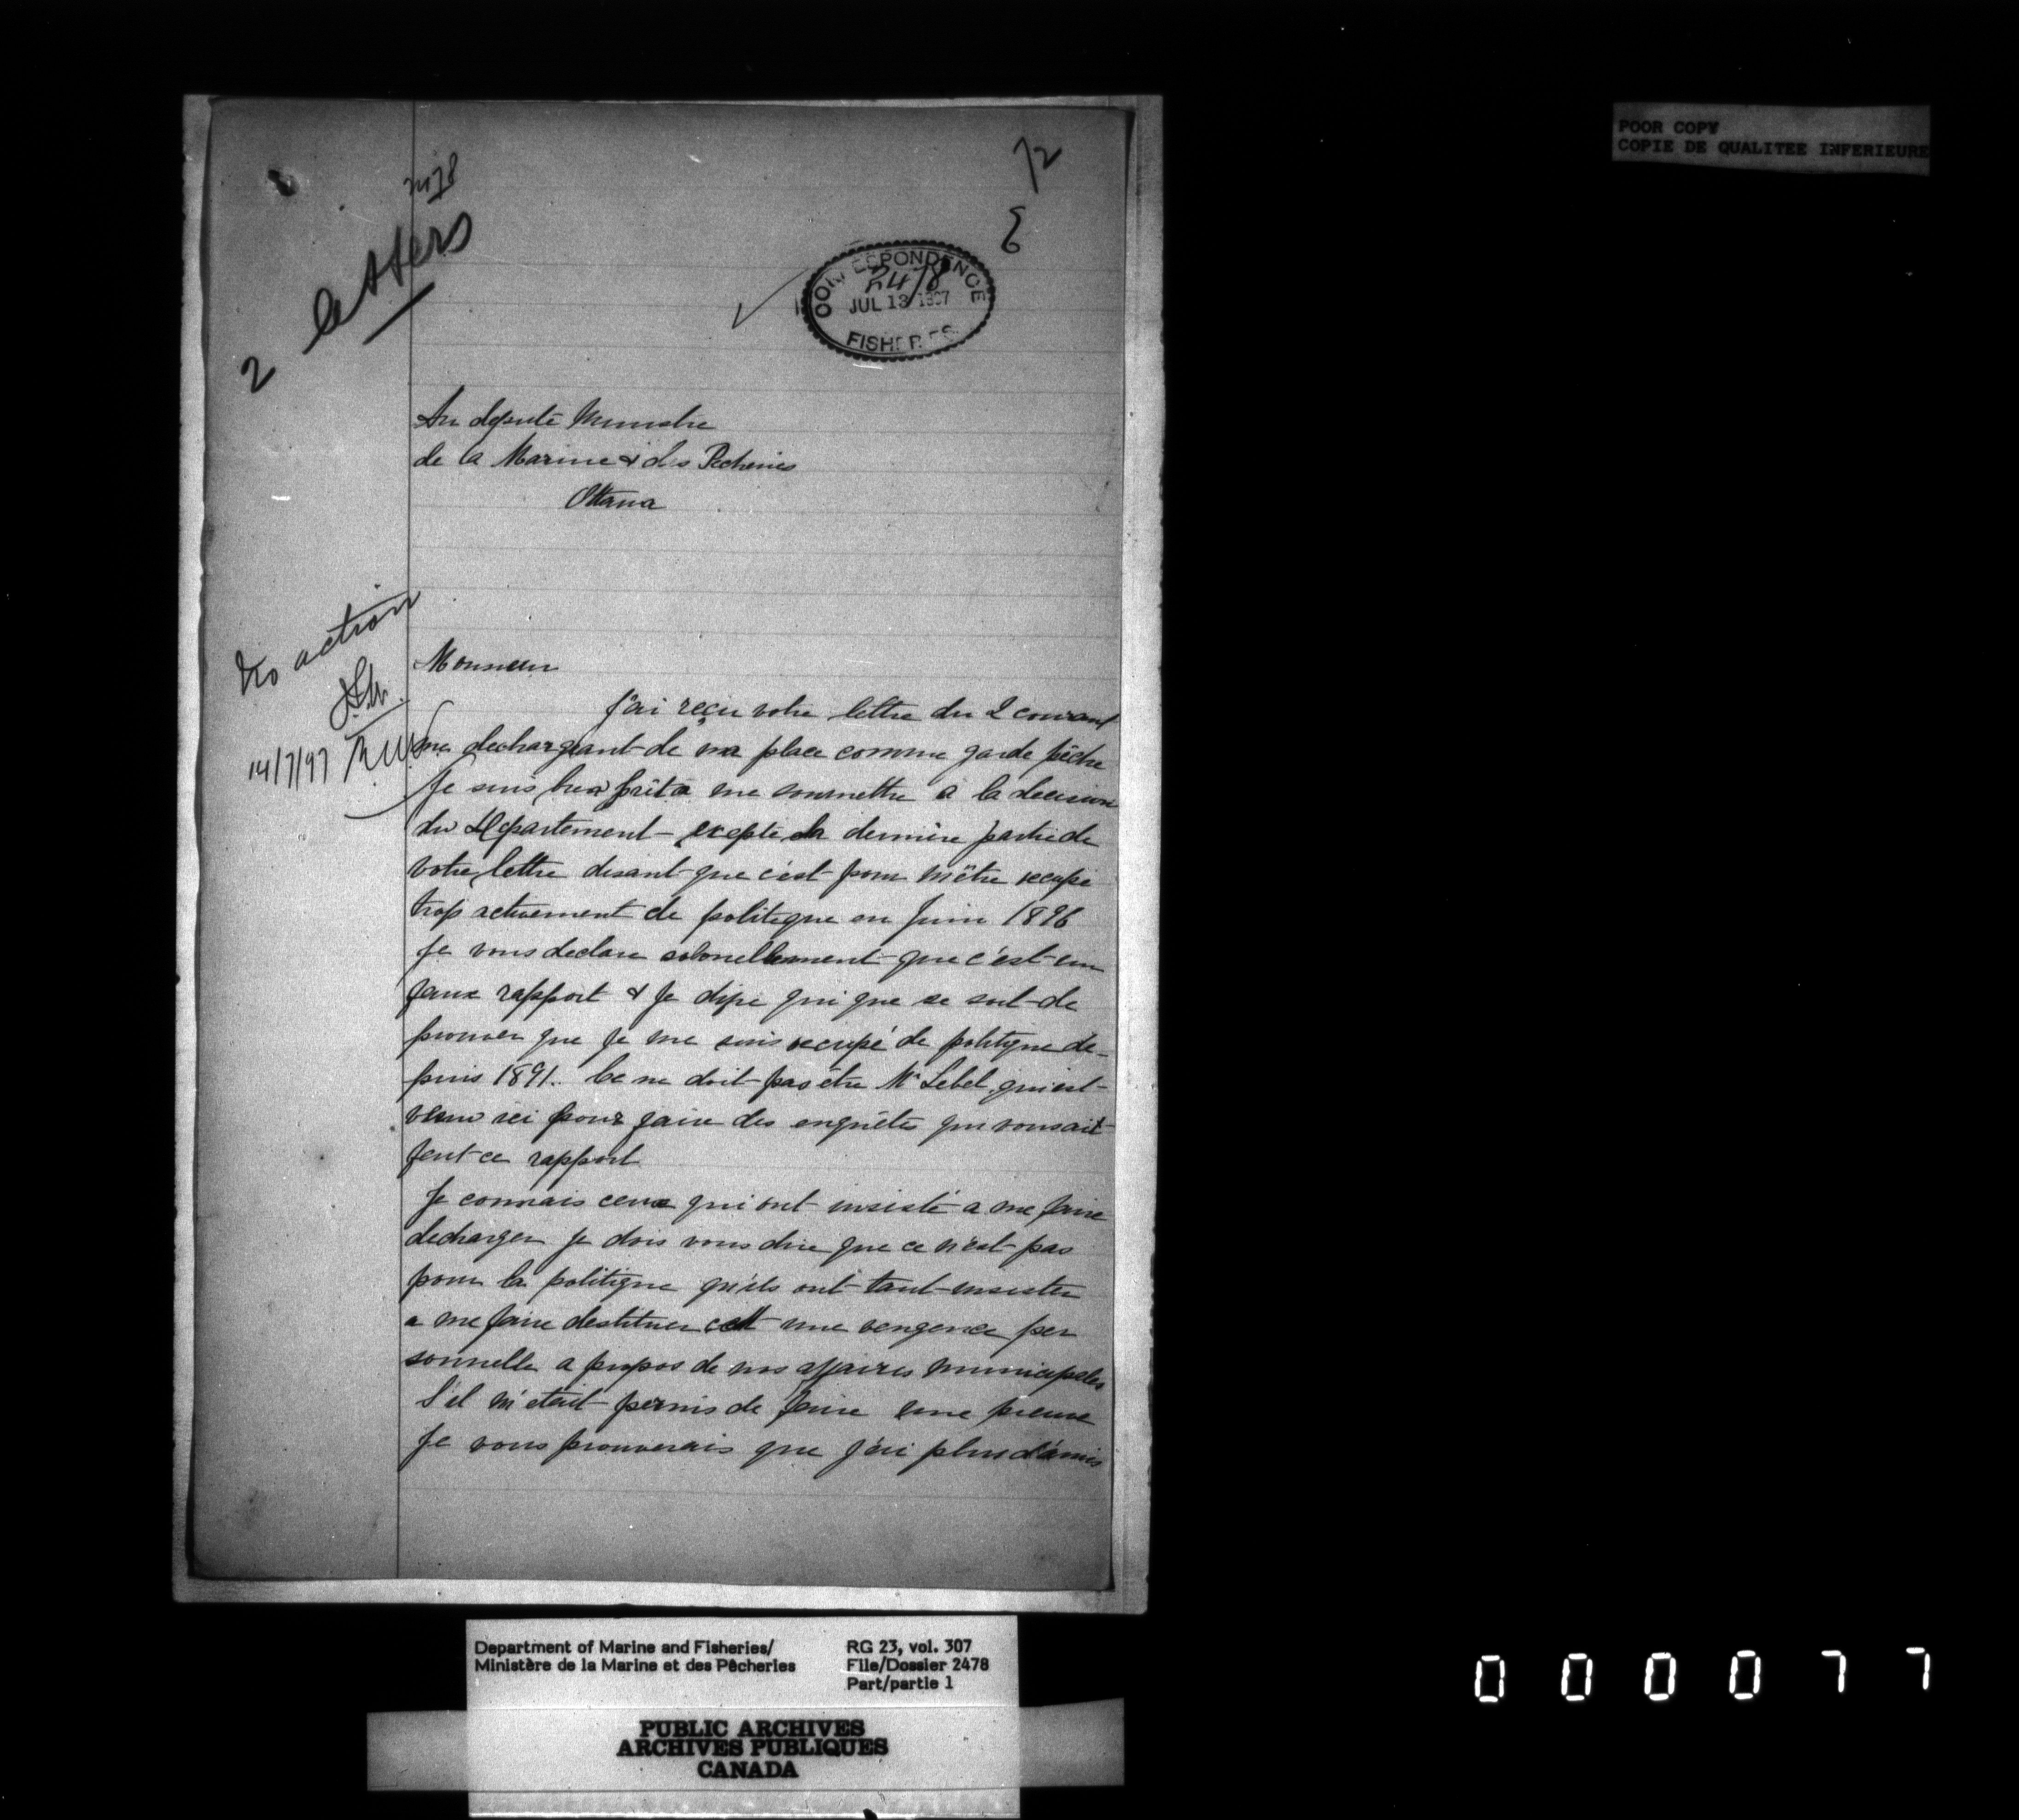 72
2478
2 letters
E
CORRESPONDENCE
2478
JUL 13 1897
FISHERIES
Au députe Ministre
de la Marine & des Pecheries
Ottawa
No action
14/7/97
Monsieur
j'ai reçu votre lettre du 2 courant
me dechargeant de ma place comme garde pêche
Je suis bien prêt a me soumettre a la decision
du Département excepté la dernière partie de
votre lettre disant que c'est pour m'être occupé
trop activement de politique en Juin 1896
Je vous declare solonellement que c'est un
faux rapport & Je défie qui que se soit de
prouver que Je me suis occupé de politique de-
puis 1891. Ce ne doit pas être Mr Lebel qui est
venu ici pour faire des enquêtes qui vous ait
fait ce rapport
Je connais ceux qui ont insisté a me faire
decharger je dois vous dire que ce n'est pas
pour la politique qu'ils ont tant insister
a me faire destituer cest une vengence per
sonnelle a propos de nos affaires municipales
S'il m'était permis de faire une preuve
Je vous prouverais que j'ai plus d'amis
POOR COPY
COPIE DE QUALITEE INFERIEURE
Department of Marine and Fisheries/
Ministère de la Marine et des Pêcheries
RG 23, vol. 307
File/Dossier 2478
Part/partie 1
PUBLIC ARCHIVES
ARCHIVES PUBLIQUES
CANADA
000077